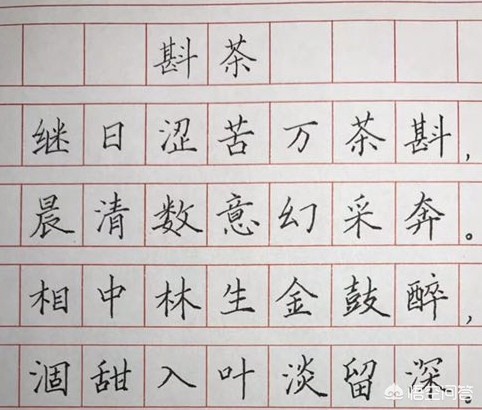 斟茶
继日涩苦万茶斟，
晨清数意幻采奔。
相中林生金鼓醉，
涸甜入叶淡留深。
悟空问答